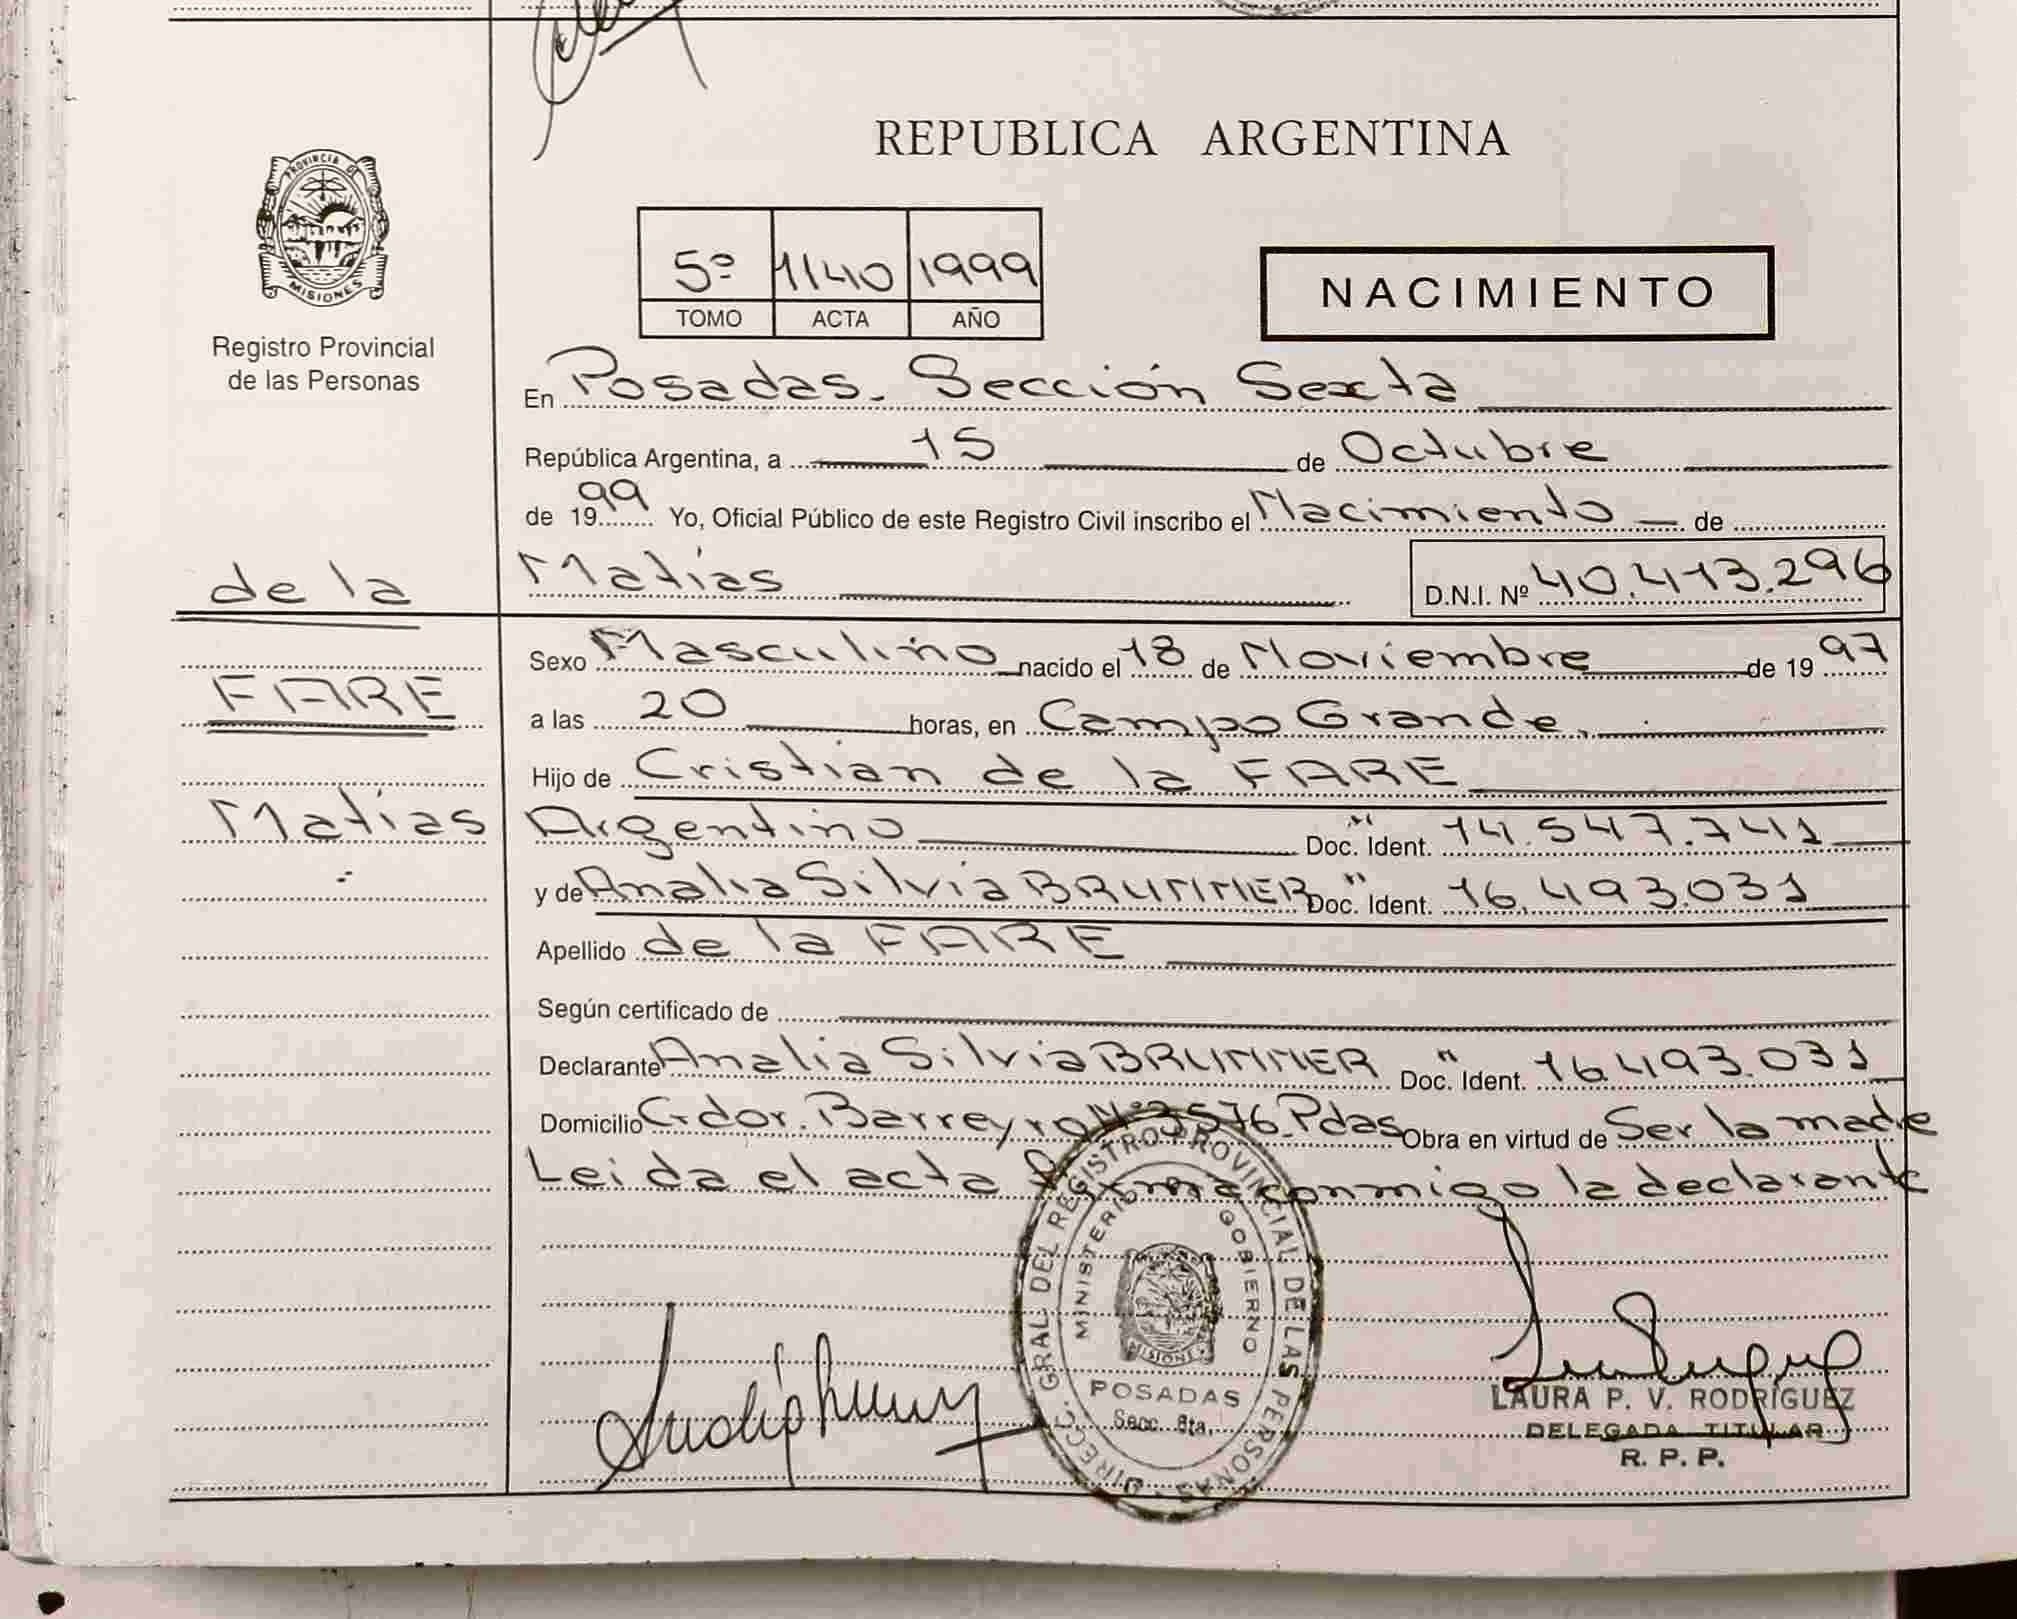 PROVINCIA DE
MISIONES
Registro Provincial
de las Personas
REPUBLICA ARGENTINA
5º 1140 1999
TOMO ACTA AÑO
NACIMIENTO
En Posadas. Sección Sexta
República Argentina, a 15 de Octubre
de 1999 Yo, Oficial Público de este Registro Civil inscribo el Nacimiento de
de la
Matías D.N.I. Nº 40.413.296
Sexo Masculino nacido el 18 de Noviembre de 1997
FARE
a las 20 horas, en Campo Grande.
Hijo de Cristian de la FARE
Matías
Argentino Doc. Ident. 14.547.741
y de Analia Silvia BRUNNER Doc. Ident. 16.493.031
Apellido de la FARE
Según certificado de
Declarante Analia Silvia BRUNNER Doc. Ident. 16.493.031
Domicilio Gdor. Barreyro Nº 3576. Pdas Obra en virtud de Ser la madre
Leida el acta firma conmigo la declarante
DIRECC. GRAL DEL REGISTRO PROVINCIAL DE LAS PERSONAS
MINISTERIO GOBIERNO
MISIONES
POSADAS
Secc. 6ta.
LAURA P. V. RODRÍGUEZ
DELEGADA TITULAR
R. P. P.